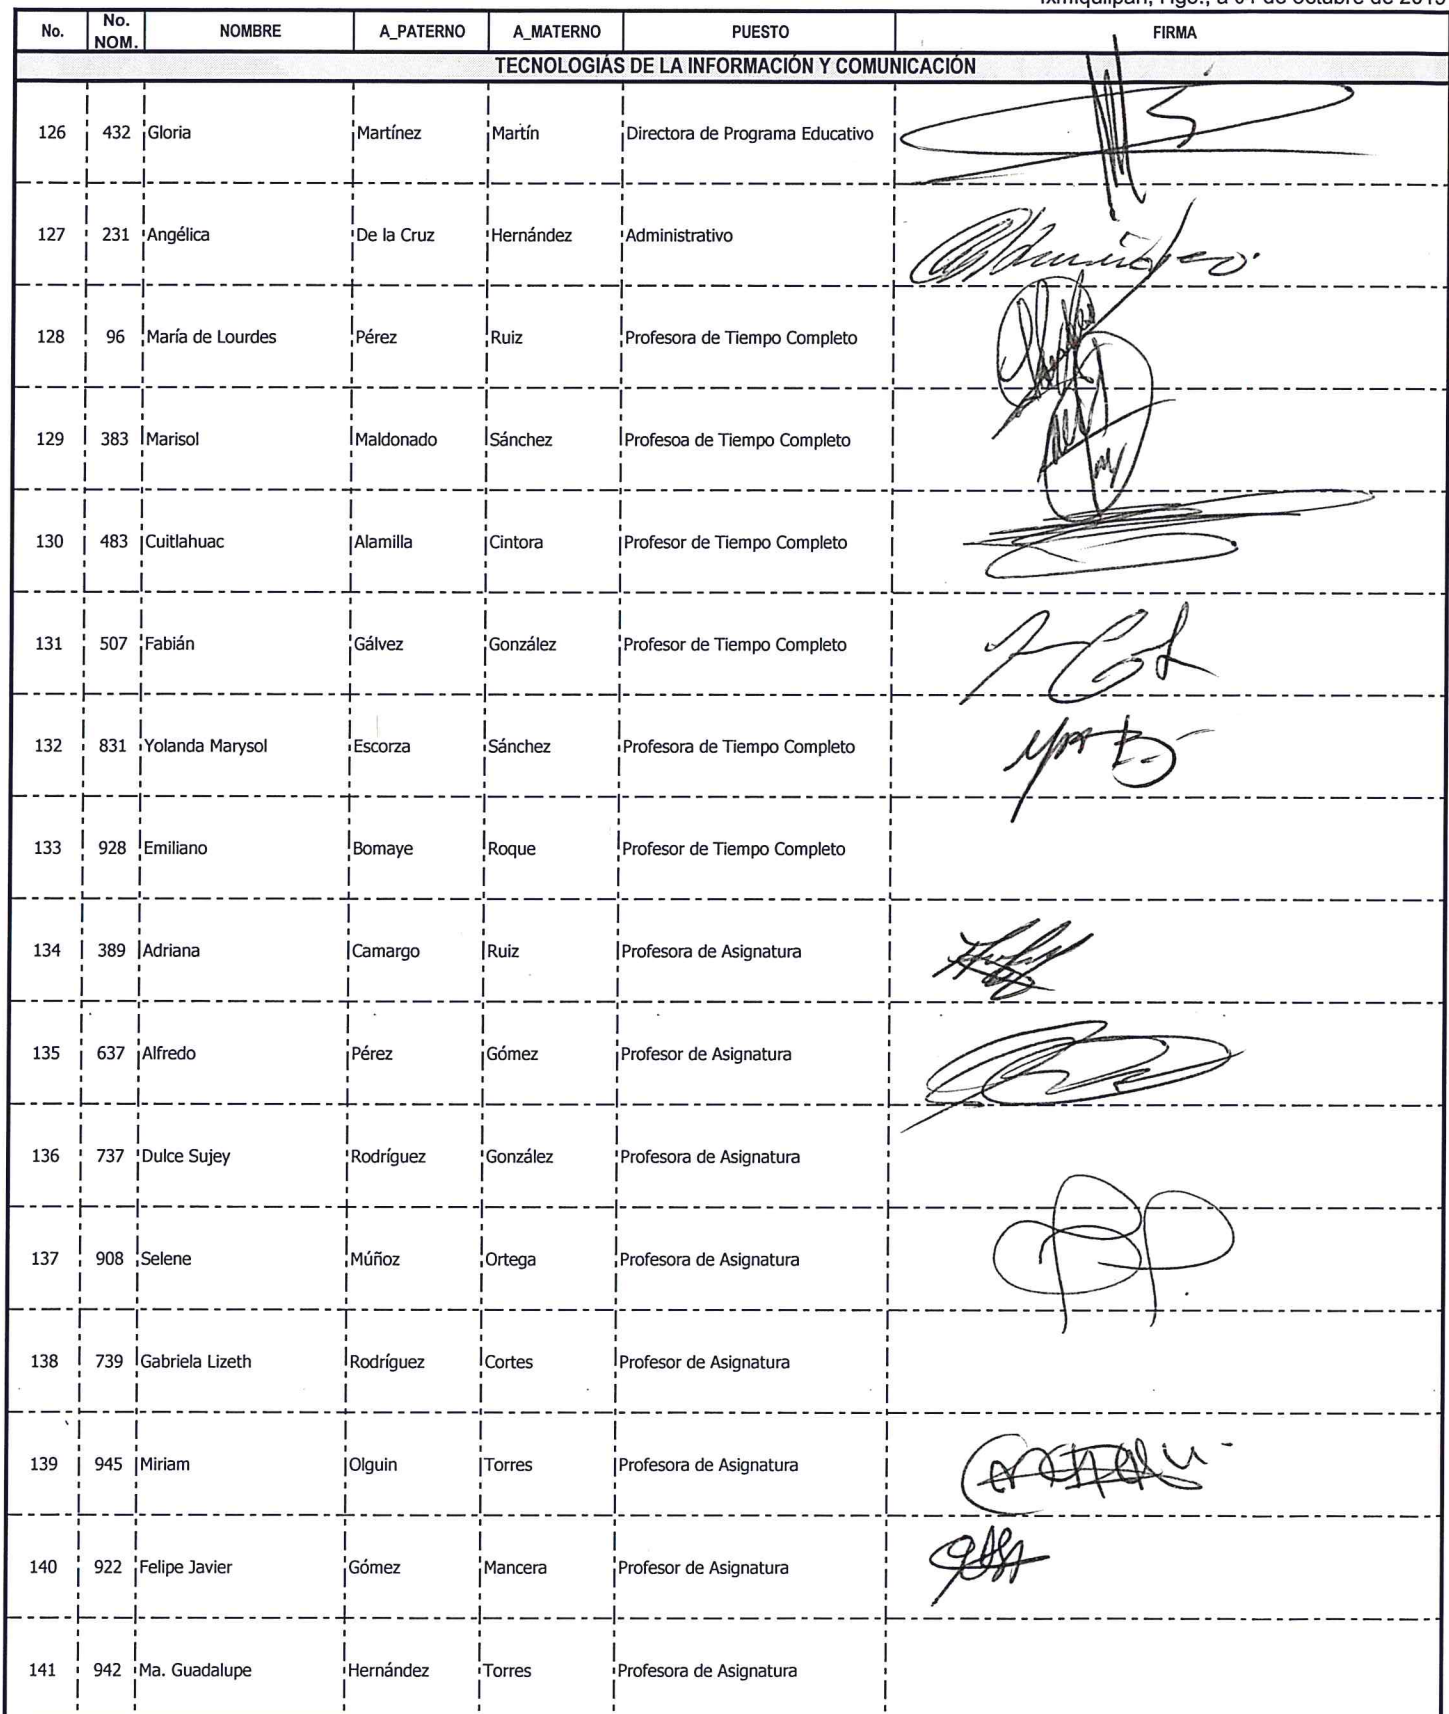 Ixmiquilpan, Hgo., a 01 de octubre de 2019
No. No. NOM. NOMBRE A_PATERNO A_MATERNO PUESTO FIRMA
TECNOLOGIÁS DE LA INFORMACIÓN Y COMUNICACIÓN
126 432 Gloria Martínez Martín Directora de Programa Educativo
127 231 Angélica De la Cruz Hernández Administrativo
128 96 María de Lourdes Pérez Ruiz Profesora de Tiempo Completo
129 383 Marisol Maldonado Sánchez Profesoa de Tiempo Completo
130 483 Cuitlahuac Alamilla Cintora Profesor de Tiempo Completo
131 507 Fabián Gálvez González Profesor de Tiempo Completo
132 831 Yolanda Marysol Escorza Sánchez Profesora de Tiempo Completo
133 928 Emiliano Bomaye Roque Profesor de Tiempo Completo
134 389 Adriana Camargo Ruiz Profesora de Asignatura
135 637 Alfredo Pérez Gómez Profesor de Asignatura
136 737 Dulce Sujey Rodríguez González Profesora de Asignatura
137 908 Selene Múñoz Ortega Profesora de Asignatura
138 739 Gabriela Lizeth Rodríguez Cortes Profesor de Asignatura
139 945 Miriam Olguin Torres Profesora de Asignatura
140 922 Felipe Javier Gómez Mancera Profesor de Asignatura
141 942 Ma. Guadalupe Hernández Torres Profesora de Asignatura